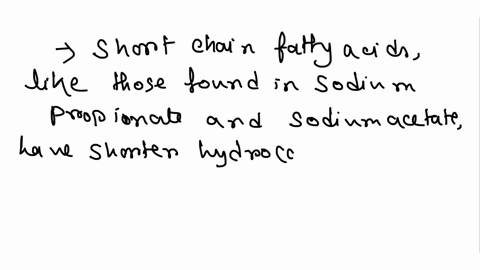 → Short chain fatty acids,
like those found in Sodium
Propionate and sodium acetate,
have shorter hydroc